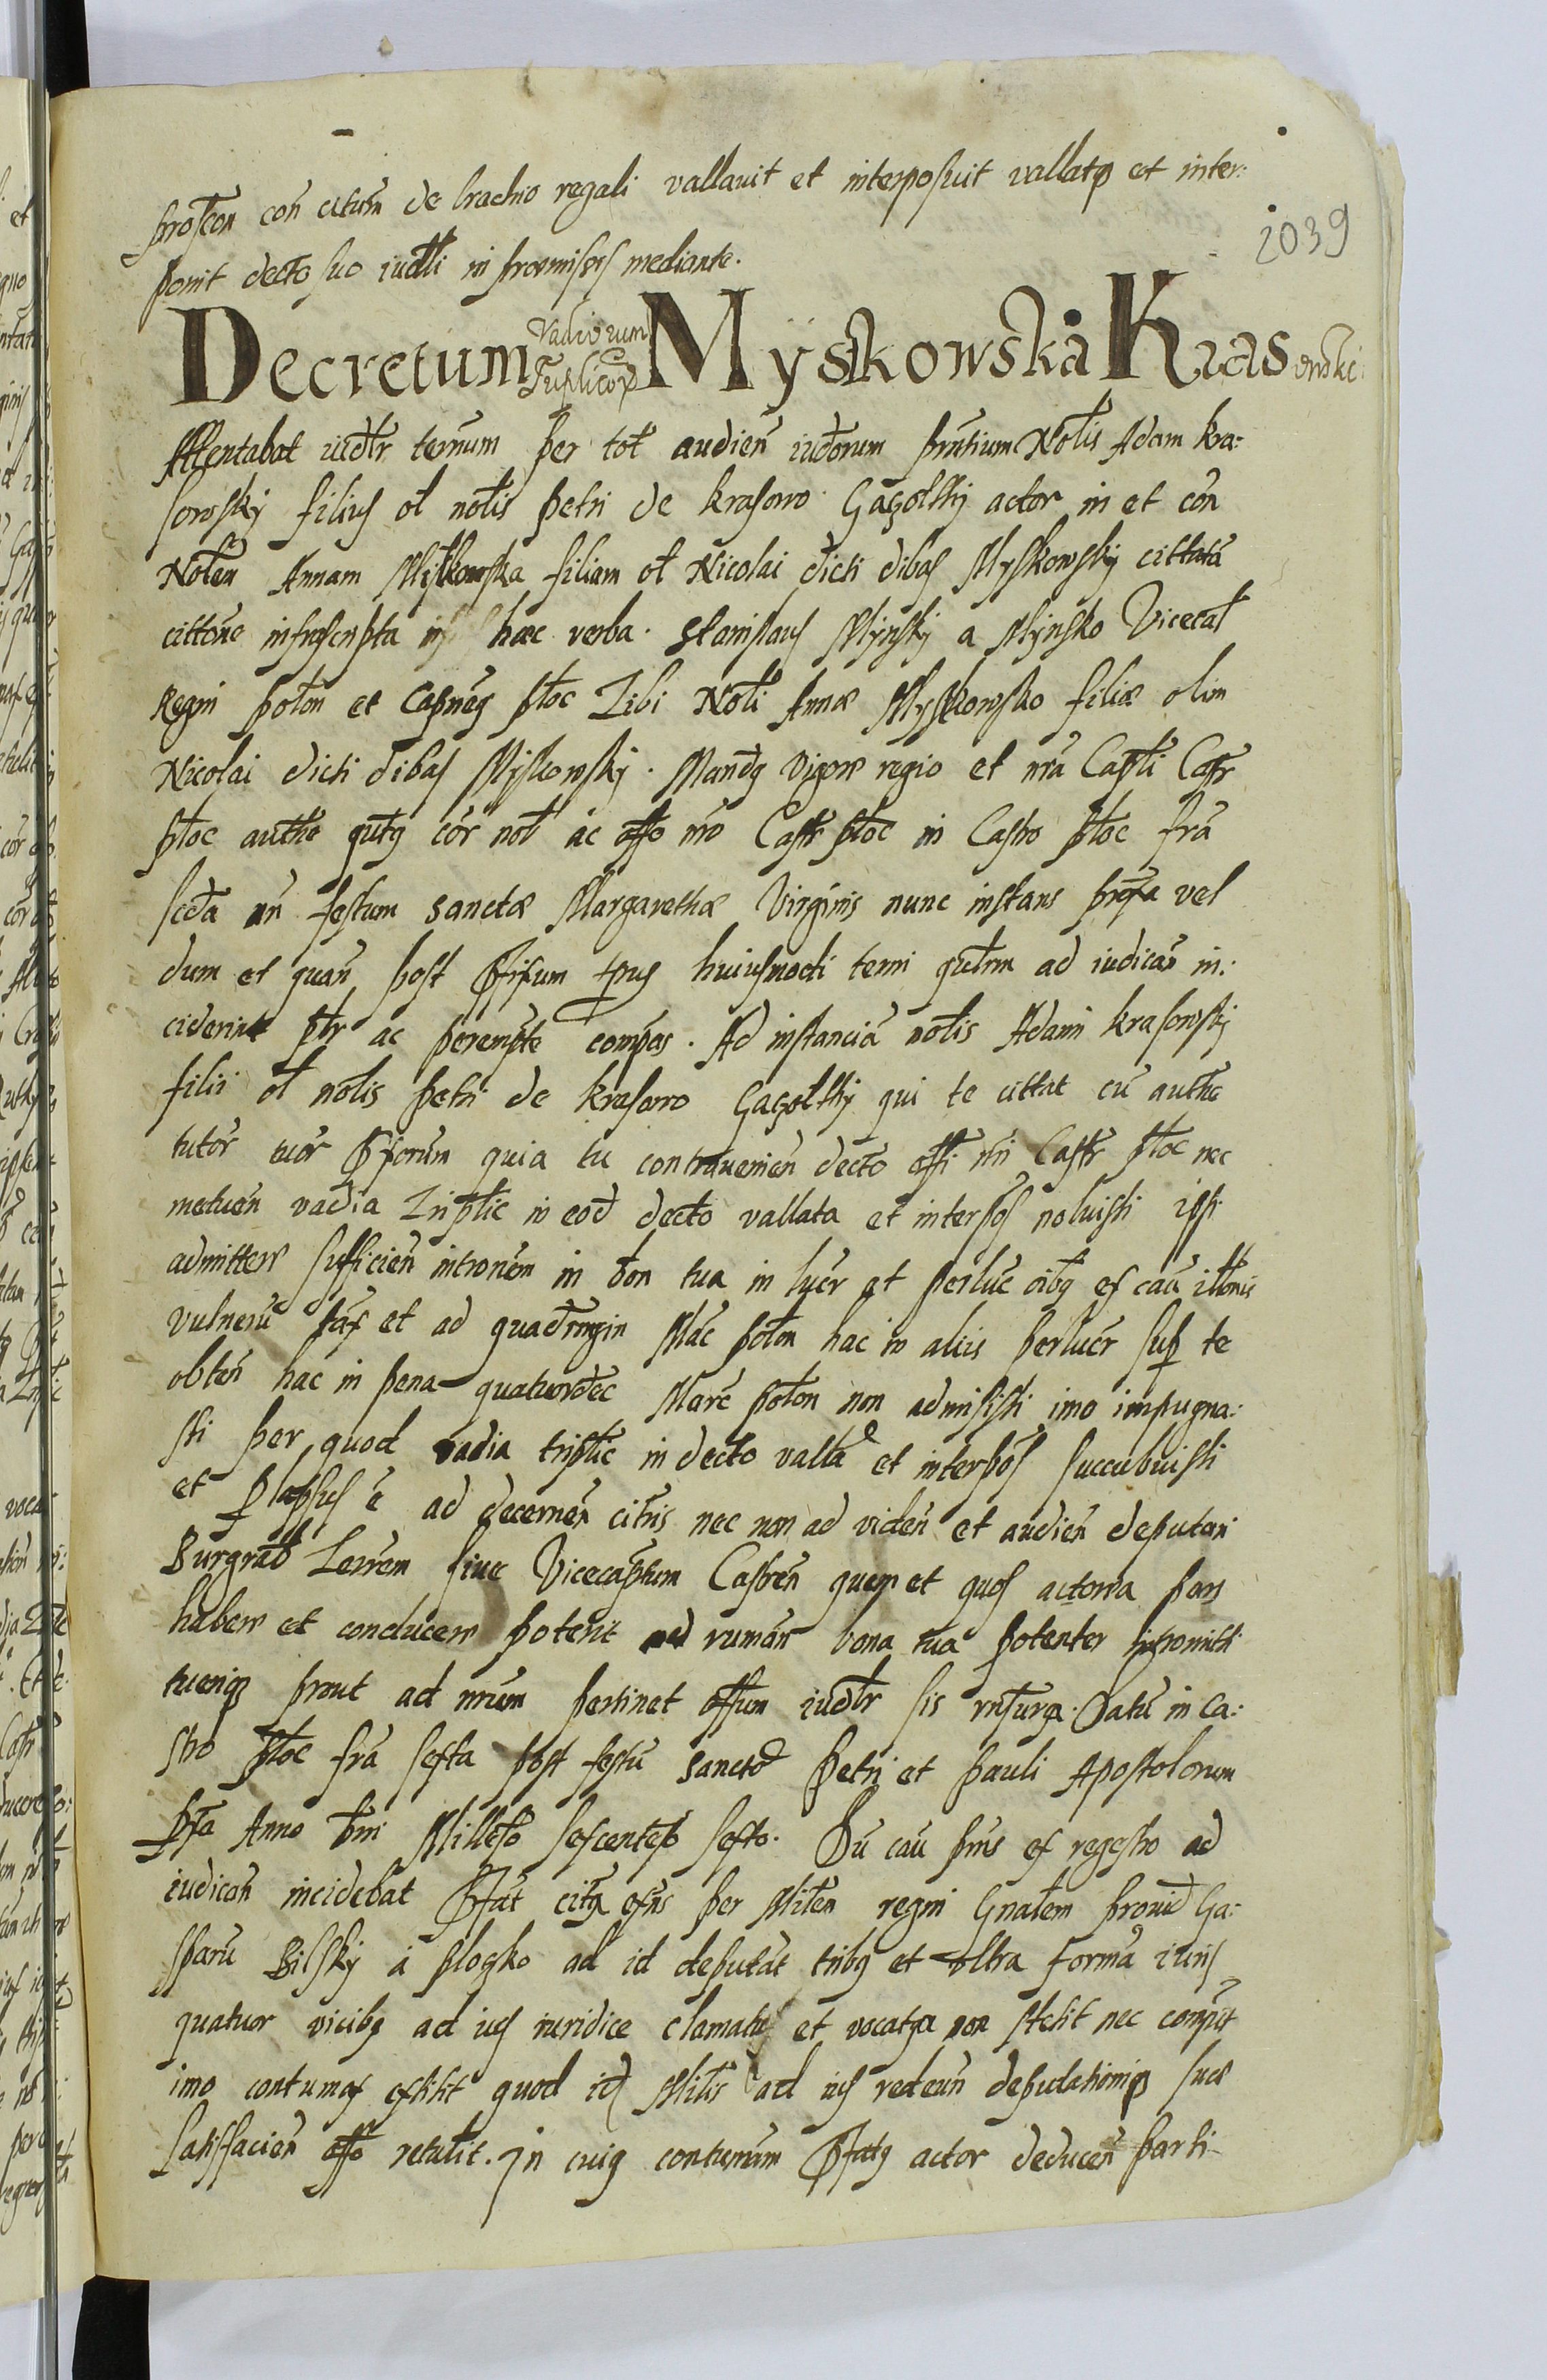 2039
proscon con citum de brachio regali vallauit et interposuit vallatq et inter:
ponit decto suo iudtli in praemissis mediante.
Decretum Vadiorum Triplicorum Myskowska Krasowski
Attentabat iudtr termum per tot audien iudorum prntium Notis Adam kra:
sowsky filius ol notis petri de krasowo Gagolthy actor in et con
Noten Annam Myskowska filiam ol Nicolai dicti dibas Myskowsky cittata
cittone infrascripta in haec verba. Stanislaus Mynsky a Mynsko Vicecat
Regni poton et Capneg ploc Tibi Noti Annae Myskowsko filiae olim
Nicolai dicti dibas Myskowsky. Mandg vigore regio et nra Capti Castr
ploc authe qutg cor not ac offo nro Castr ploc in Castro ploc fra
scda an festum sanctae Margarethae Virginis nunc instans pnxa vel
dum et quan post pfixum tpus huiusmodi termi qutrm ad iudican in:
ciderint ptr ac perempte compas. Ad instancia notis Adami krasowsky
filii ol notis petri de krasowo Gagolthy qui te cittat cu authe
tutor tuor pforum quia tu contrauenien decto offi nri Castr ploc nec
metuen vadia Triplic in eod decto vallata et interpos noluisti ipsi
admittere sufficien intronem in bon tua in lucr et perluc oibg ex cau ittonis
vulneru fax et ad quadrmgin Mac poton hac in aliis perlucr sup te
obten hac in pena quatuordec Marc poton non admisisti imo impugna:
sti per quod vadia triplic in decto valla et interpos succubuisti
et plapsus e ad decernen citnis nec non ad viden et audien deputari
Burgrab Terrem siue Vicecaptum Castren quem et quos actorea pars
habere et conducere poterit ad ruman bona tua potenter intromitti
tuenq prout ad nrum pertinet offum iudtr sis rnsura. Datu in Ca:
stro ploc fra sexta post festu sancto petri et pauli Apostolorum
pxa Anno dni Millesto sexcentesio sexto. Du cau pns ex regestro ad
iudican incidebat pfat cita exns per Miten regni Gnatem prouid Ga:
sparu Bilsky a plogko ad id deputat tribg et ultra forma iuris
quatuor vicibg ad ius iuridice clamata et vocatqa non stetit nec comput
imo contumax extitit quod id Mitis ad ius redeun deputationiq suae
satisfacien offo retulit. In cuig contumam pfatg actor deducen parti